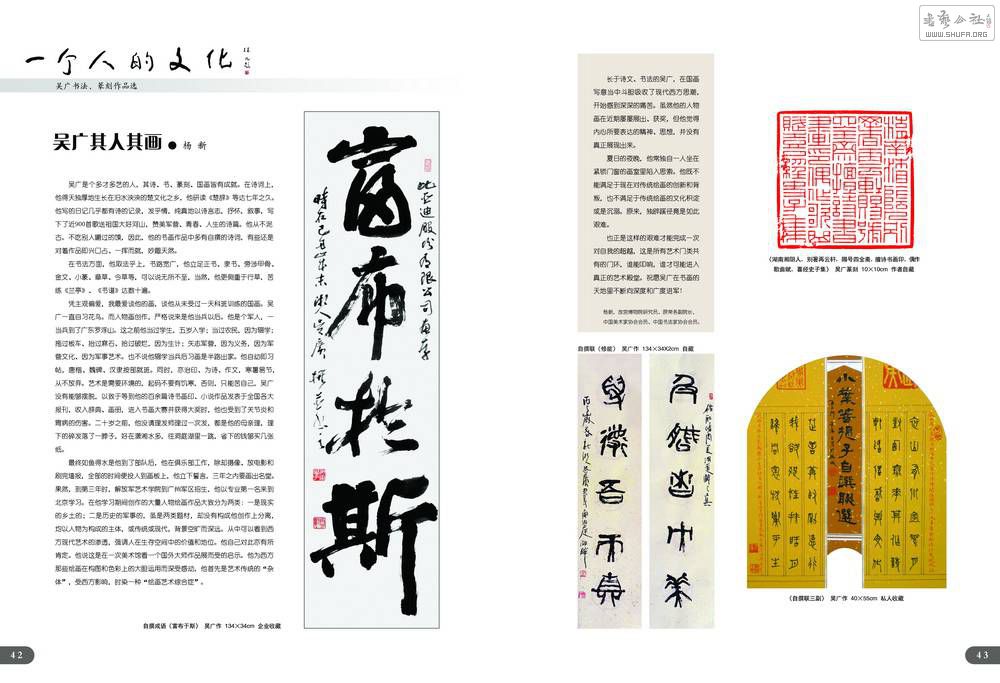 WWW.SHUFA.ORG
一个人的文化
吴广书法、篆刻作品选
吴广其人其画 ● 杨 新
吴广是个多才多艺的人。其诗、书、篆刻、国画皆有成就。在诗词上，
他得天独厚地生长在汨水泱泱的楚文化之乡。他研读《楚辞》等达七年之久。
他写的日记几乎都有诗的记录，发乎情，纯真地以诗言志、抒怀、叙事，写
下了近900首歌送祖国大好河山，赞美军营、青春、人生的诗篇。他从不泥
古。不吃别人嚼过的馍，因此，他的书画作品中多有自撰的诗词，有些还是
对着作品即兴口占，一挥而就，妙趣天然。
在书法方面，他取法乎上，书路宽广，他立足正书，隶书，旁涉甲骨、
金文、小篆、章草、今草等。可以说无所不至。当然，他更侧重于行草，苦
练《兰亭》、《书谱》达数十遍。
凭主观偏爱，我最爱谈他的画，谈他从未受过一天科班训练的国画。吴
广一直自习花鸟。而人物画创作，严格说来是他当兵以后。他是个军人，一
当兵到了广东罗浮山。这之前他当过学生，五岁入学；当过农民，因为辍学；
拖过板车、抬过麻石、拾过破烂，因为生计；矢志军营，因为义务，因为军
营文化、因为军事艺术。也不说他辍学当兵后习画是半路出家。他自幼即习
帖，唐楷、魏碑、汉隶按部就班。同时，亦治印、为诗，作文，寒暑易节，
从不放弃。艺术是需要环境的，起码不要有饥寒。否则，只能苦自己。吴广
没有能够摆脱。以致于等到他的百余篇诗书画印、小说作品发表于全国各大
报刊，收入辞典、画册、进入书画大赛并获得大奖时，他也受到了关节炎和
胃病的伤害。二十岁之前，他没请理发师理过一次发，都是他的母亲理，理
下的碎发落了一脖子。好在潇湘水多。往洞庭湖里一跳，省下的钱够买几张
纸。
最终如鱼得水是他到了部队后，他在俱乐部工作，除却摄像，放电影和
刷完墙报，全部的时间便投入到画板上，他立下誓言。三年之内要画出名堂。
果然，到第三年时，解放军艺术学院到广州军区招生，他以专业第一名来到
北京学习。在他学习期间创作的大量人物绘画作品大致分为两类：一是现实
的乡土的；二是历史的军事的。虽是两类题材，却没有构成他创作上分离，
均以人物为构成的主体，或传统或现代，背景空旷而深远。从中可以看到西
方现代艺术的渗透，强调人在生存空间中的价值和地位。他自己对此亦有所
肯定。他说这是在一次美术馆看一个国外大师作品展而受的启示。他为西方
那些绘画在构图和色彩上的大胆运用而深受感动，他首先是艺术传统的“杂
体”，受西方影响，时染一种“绘画艺术综合症”。
富布于斯
自撰成语《富布于斯》 吴广作 134×34cm 企业收藏
42
长于诗文、书法的吴广，在国画
写意当中斗胆吸收了现代西方思潮，
开始感到深深的痛苦。虽然他的人物
画在近期屡屡展出、获奖，但他觉得
内心所要表达的精神、思想，并没有
真正展现出来。
夏日的夜晚，他常独自一人坐在
紧锁门窗的画室里陷入思索。他既不
能满足于现在对传统绘画的创新和背
叛，也不满足于传统绘画的文化积淀
或是沉溺。原来，独辟蹊径竟是如此
艰难。
也正是这样的艰难才能完成一次
对自我的超越。这是所有艺术门类共
有的门环。谁能叩响，谁才可能进入
真正的艺术殿堂。祝愿吴广在书画的
天地里不断向深度和广度进军！
杨新，故宫博物院研究员，原常务副院长，
中国美术家协会会员，中国书法家协会会员。
自撰联《修能》 吴广作 134×34X2cm 自藏
《湖南湘阴人，别署再云轩，赐号四全斋，擅诗书画印，偶作
歌曲赋、喜经史子集》 吴广篆刻 10×10cm 作者自藏
小叶菩提子自撰联选
《自撰联三副》 吴广作 40×55cm 私人收藏
43